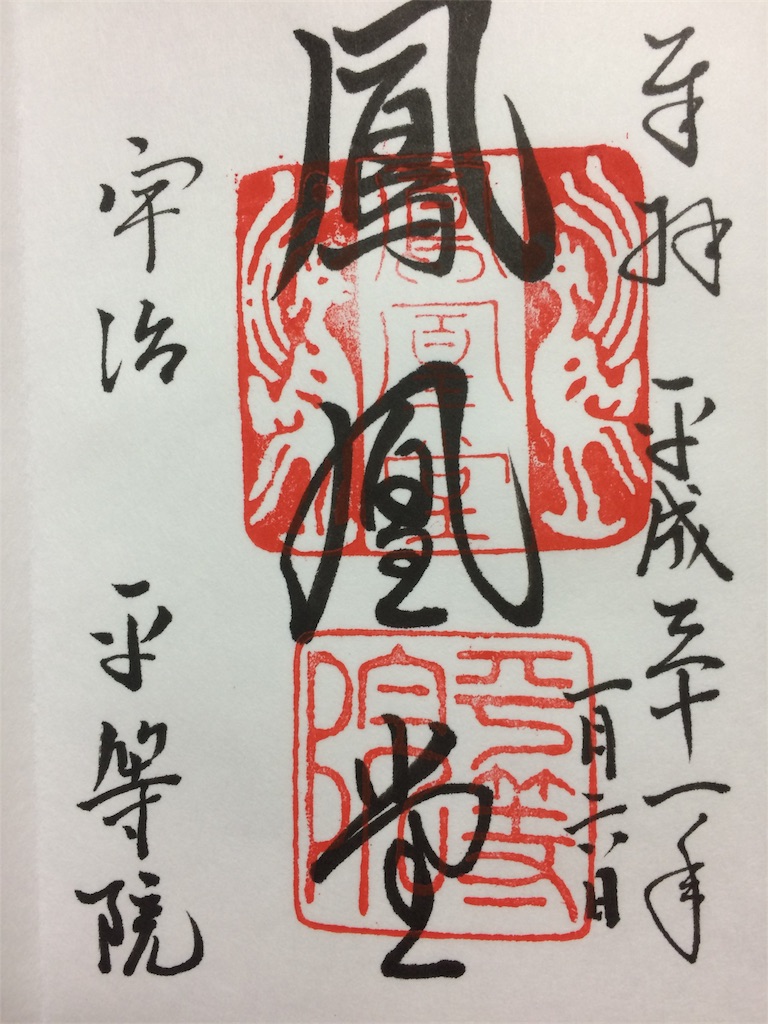 奉拝 平成三十一年
一月六日
鳳凰堂
鳳凰堂
平等院
宇治 平等院